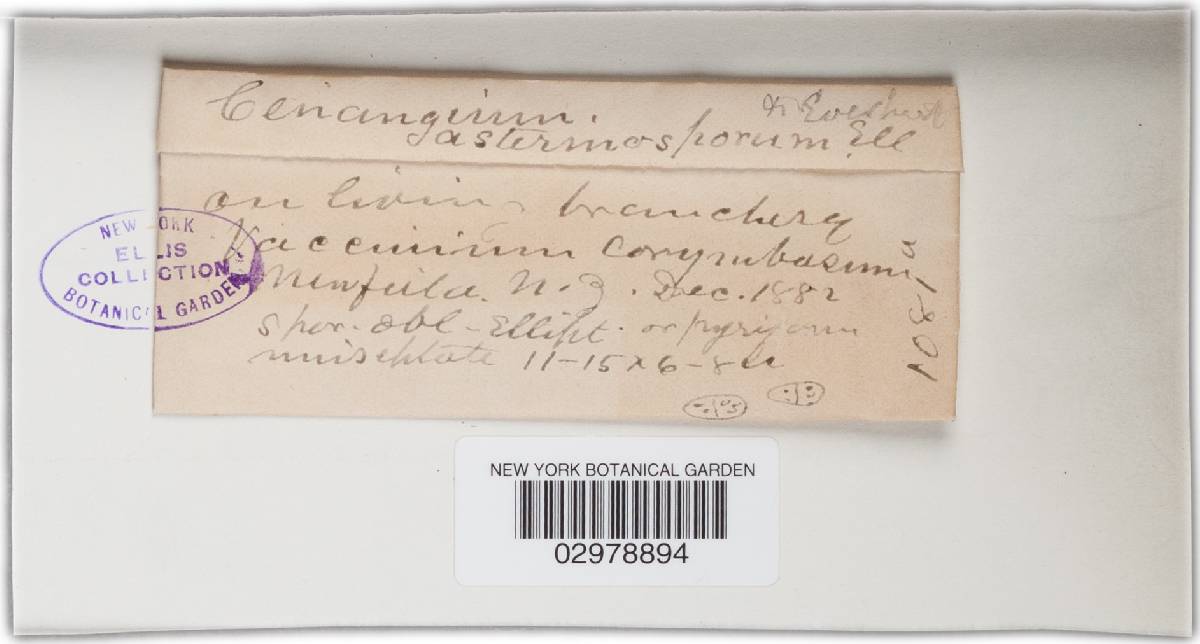 Cenangium. & Everhart
gastermosporum Ell
on living branches of
Vaccinium corymbosum
Newfield. N.J. Dec. 1882
spor. obl-Ellipt. or pyriform
uniseptate 11-15 x 6-8 u
NEW YORK
ELLIS
COLLECTION
BOTANICAL GARDEN
NEW YORK BOTANICAL GARDEN
02978894